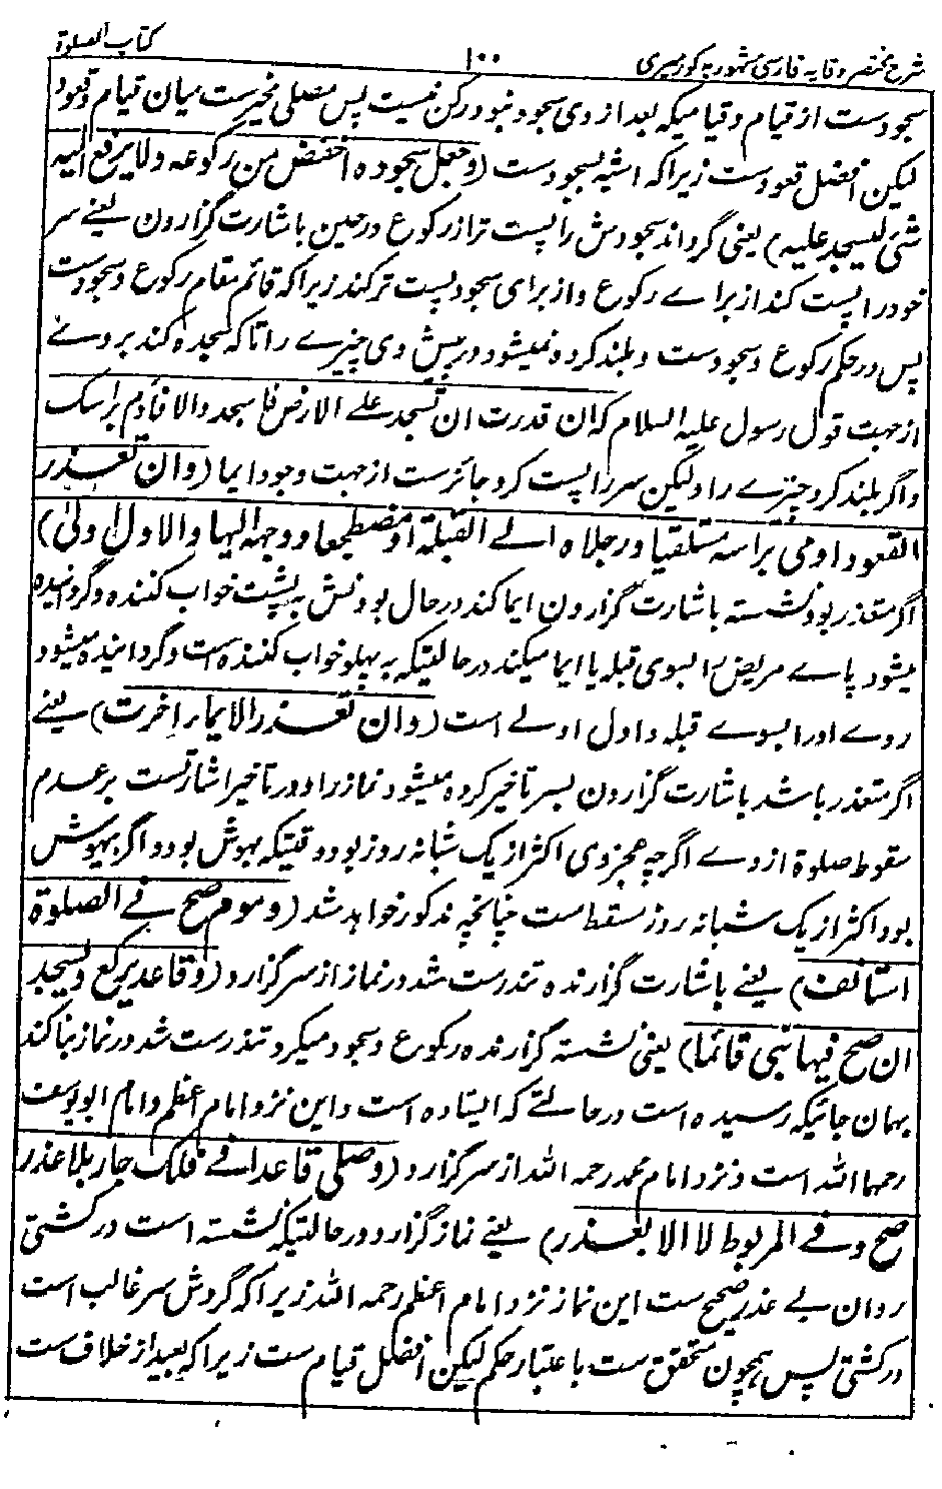 شرح مختصر وقایه فارسی مشهور به کور میری
۱۰۰
کتاب الصلوة
سجودست از قیام و قیامیکه بعد از وی سجود نبود رکن نیست پس مصلی مخیرست میان قیام و قعود
لیکن افضل قعودست زیرا که اشبه بسجودست (وجعل سجوده اخفض من رکوعه ولا یرفع الیه
شئ لیسجد علیه) یعنی گرداند سجودش را پست تر از رکوع در حین باشارت گزاردن یعنے سر
خود را پست کند از براے رکوع و از برای سجود پست تر کند زیرا که قائم مقام رکوع و سجودست
پس در حکم رکوع و سجودست و بلند کرده نمیشود در پیش وی چیزے را تا که سجده کند بر وے
از جهت قول رسول علیه السلام که ان قدرت ان تسجد علے الارض فاسجد والا فاوم براسک
و اگر بلند کرد چیزے را ولیکن سر را پست کرد جائزست از جهت وجود ایما (وان تعذر
القعود اومی براسه مستلقیا ورجلاه الے القبلة او مضطجعا ووجهه الیها والاول اولی)
اگر متعذر بود نشسته باشارت گزاردن ایما کند در حال بودنش به پشت خواب کننده و گردانیده
میشود پاے مریض را بسوی قبله یا ایما میکند در حالتیکه به پهلو خواب کننده است و گردانیده میشود
روے او را بسوے قبله و اول اولے است (وان تعذر الایماء اخرت) یعنے
اگر متعذر باشد باشارت گزاردن بسر تاخیر کرده میشود نماز را و در تاخیر اشارتست بر عدم
سقوط صلوة از وے اگرچه عجز وی اکثر از یک شبانه روز بود وقتیکه بهوش بود و اگر بیهوش
بود اکثر از یک شبانه روز مسقط است چنانچه مذکور خواهد شد (وموم صح فے الصلوة
استانف) یعنے باشارت گزارنده تندرست شد در نماز از سر گزارد (وقاعد یرکع ویسجد
ان صح فیها بنی قائما) یعنی نشسته گزارنده رکوع و سجود میکرد تندرست شد در نماز بنا کند
بهمان جائیکه رسیده است در حالتے که ایستاده است و این نزد امام اعظم و امام ابو یوسف
رحمهما الله است و نزد امام محمد رحمه الله از سر گزارد (وصلی قاعدا فے فلک جار بلا عذر
صح وفے المربوط لا الا بعذر) یعنے نماز گزارد در حالتیکه نشسته است در کشتی
روان بے عذر صحیح ست این نماز نزد امام اعظم رحمه الله زیرا که گردش سر غالب است
در کشتی پس همچون متحقق ست باعتبار حکم لیکن افضل قیام ست زیرا که بعید از خلاف ست